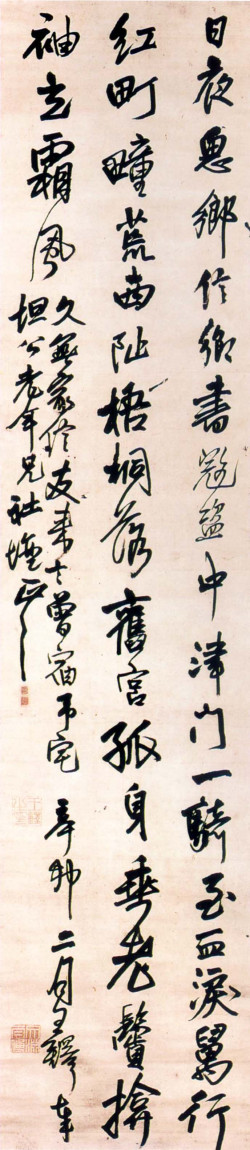 日夜思鄉信鄉書寇盜中津門一騎至血淚萬行
紅町疃荒南阯梧桐落舊宮孤身垂老鬢揜
袖立霜風
久無家信友来云曾宿宅 辛卯二月王鐸奉
坦公老年兄社壇正之